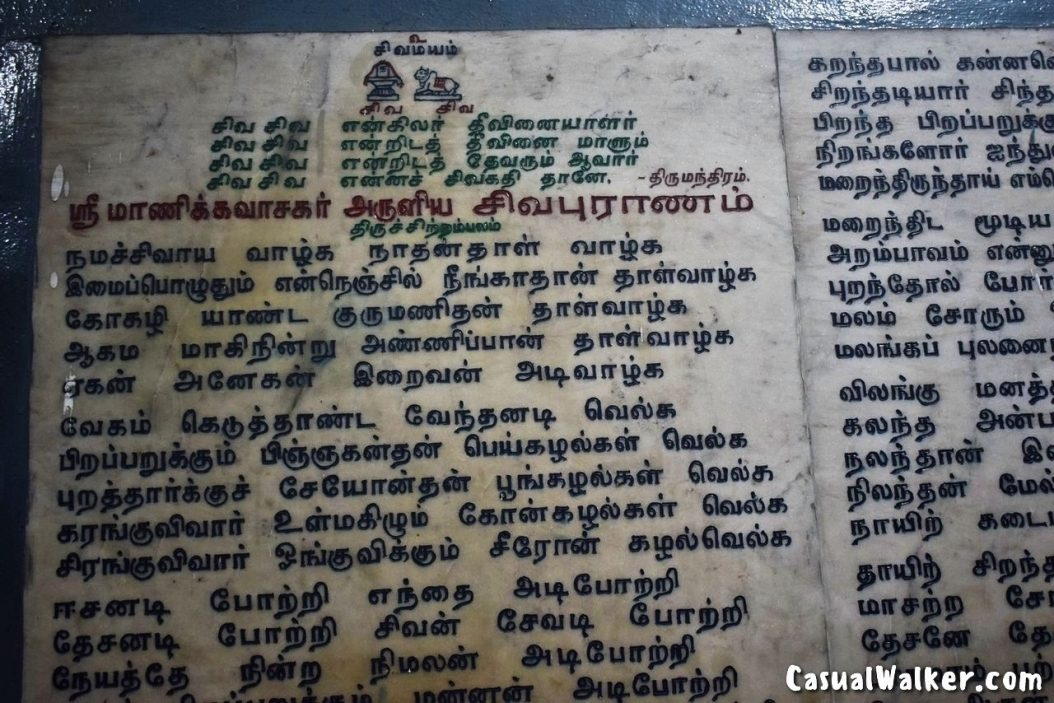 சிவமயம்
சிவ சிவ
சிவ சிவ என்கிலர் தீவினையாளர்
சிவ சிவ என்றிடத் தீவினை மாளும்
சிவ சிவ என்றிடத் தேவரும் ஆவார்
சிவ சிவ என்னச் சிவகதி தானே. -திருமந்திரம்.
ஸ்ரீ மாணிக்கவாசகர் அருளிய சிவபுராணம்
திருச்சிற்றம்பலம்
நமச்சிவாய வாழ்க நாதன்தாள் வாழ்க
இமைப்பொழுதும் என்நெஞ்சில் நீங்காதான் தாள்வாழ்க
கோகழி யாண்ட குருமணிதன் தாள்வாழ்க
ஆகம மாகிநின்று அண்ணிப்பான் தாள்வாழ்க
ஏகன் அனேகன் இறைவன் அடிவாழ்க
வேகம் கெடுத்தாண்ட வேந்தனடி வெல்க
பிறப்பறுக்கும் பிஞ்ஞகன்தன் பெய்கழல்கள் வெல்க
புறத்தார்க்குச் சேயோன்தன் பூங்கழல்கள் வெல்க
கரங்குவிவார் உள்மகிழும் கோன்கழல்கள் வெல்க
சிரங்குவிவார் ஓங்குவிக்கும் சீரோன் கழல்வெல்க
ஈசனடி போற்றி எந்தை அடிபோற்றி
தேசனடி போற்றி சிவன் சேவடி போற்றி
நேயத்தே நின்ற நிமலன் அடிபோற்றி
மன்னன் அடிபோற்றி
கறந்தபால்
சிறந்தடியார்
பிறந்த பிறப்பறுக்கு
நிறங்களோர்
மறைந்திருந்தாய்
மறைந்திட மூடிய
அறம்பாவம்
புறந்தோல்
மலம் சோரும்
மலங்கப்
விலங்கு
கலந்த
நலந்தான்
நிலந்தன்
நாயிற்
தாயிற்
மாசற்ற
தேசனே
CasualWalker.com